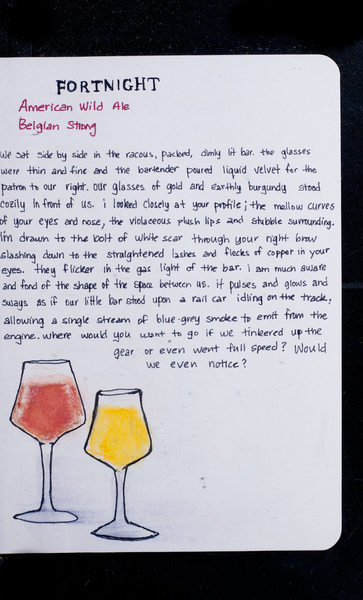 FORTNIGHT
American Wild Ale
Belgian Strong
We sat side by side in the racous, packed, dimly lit bar. the glasses
were thin and fine and the bartender poured liquid velvet for the
patron to our right. our glasses of gold and earthly burgundy stood
cozily in front of us. i looked closely at your profile; the mellow curves
of your eyes and nose, the violaceous plush lips and stubble surrounding.
I'm drawn to the bolt of white scar through your right brow
slashing down to the straightened lashes and flecks of copper in your
eyes. they flicker in the gas light of the bar. i am much aware
and fond of the shape of the space between us. it pulses and glows and
sways as if our little bar stood upon a rail car idling on the track,
allowing a single stream of blue-grey smoke to emit from the
engine. where would you want to go if we tinkered up the
gear or even went full speed? Would
we even notice?